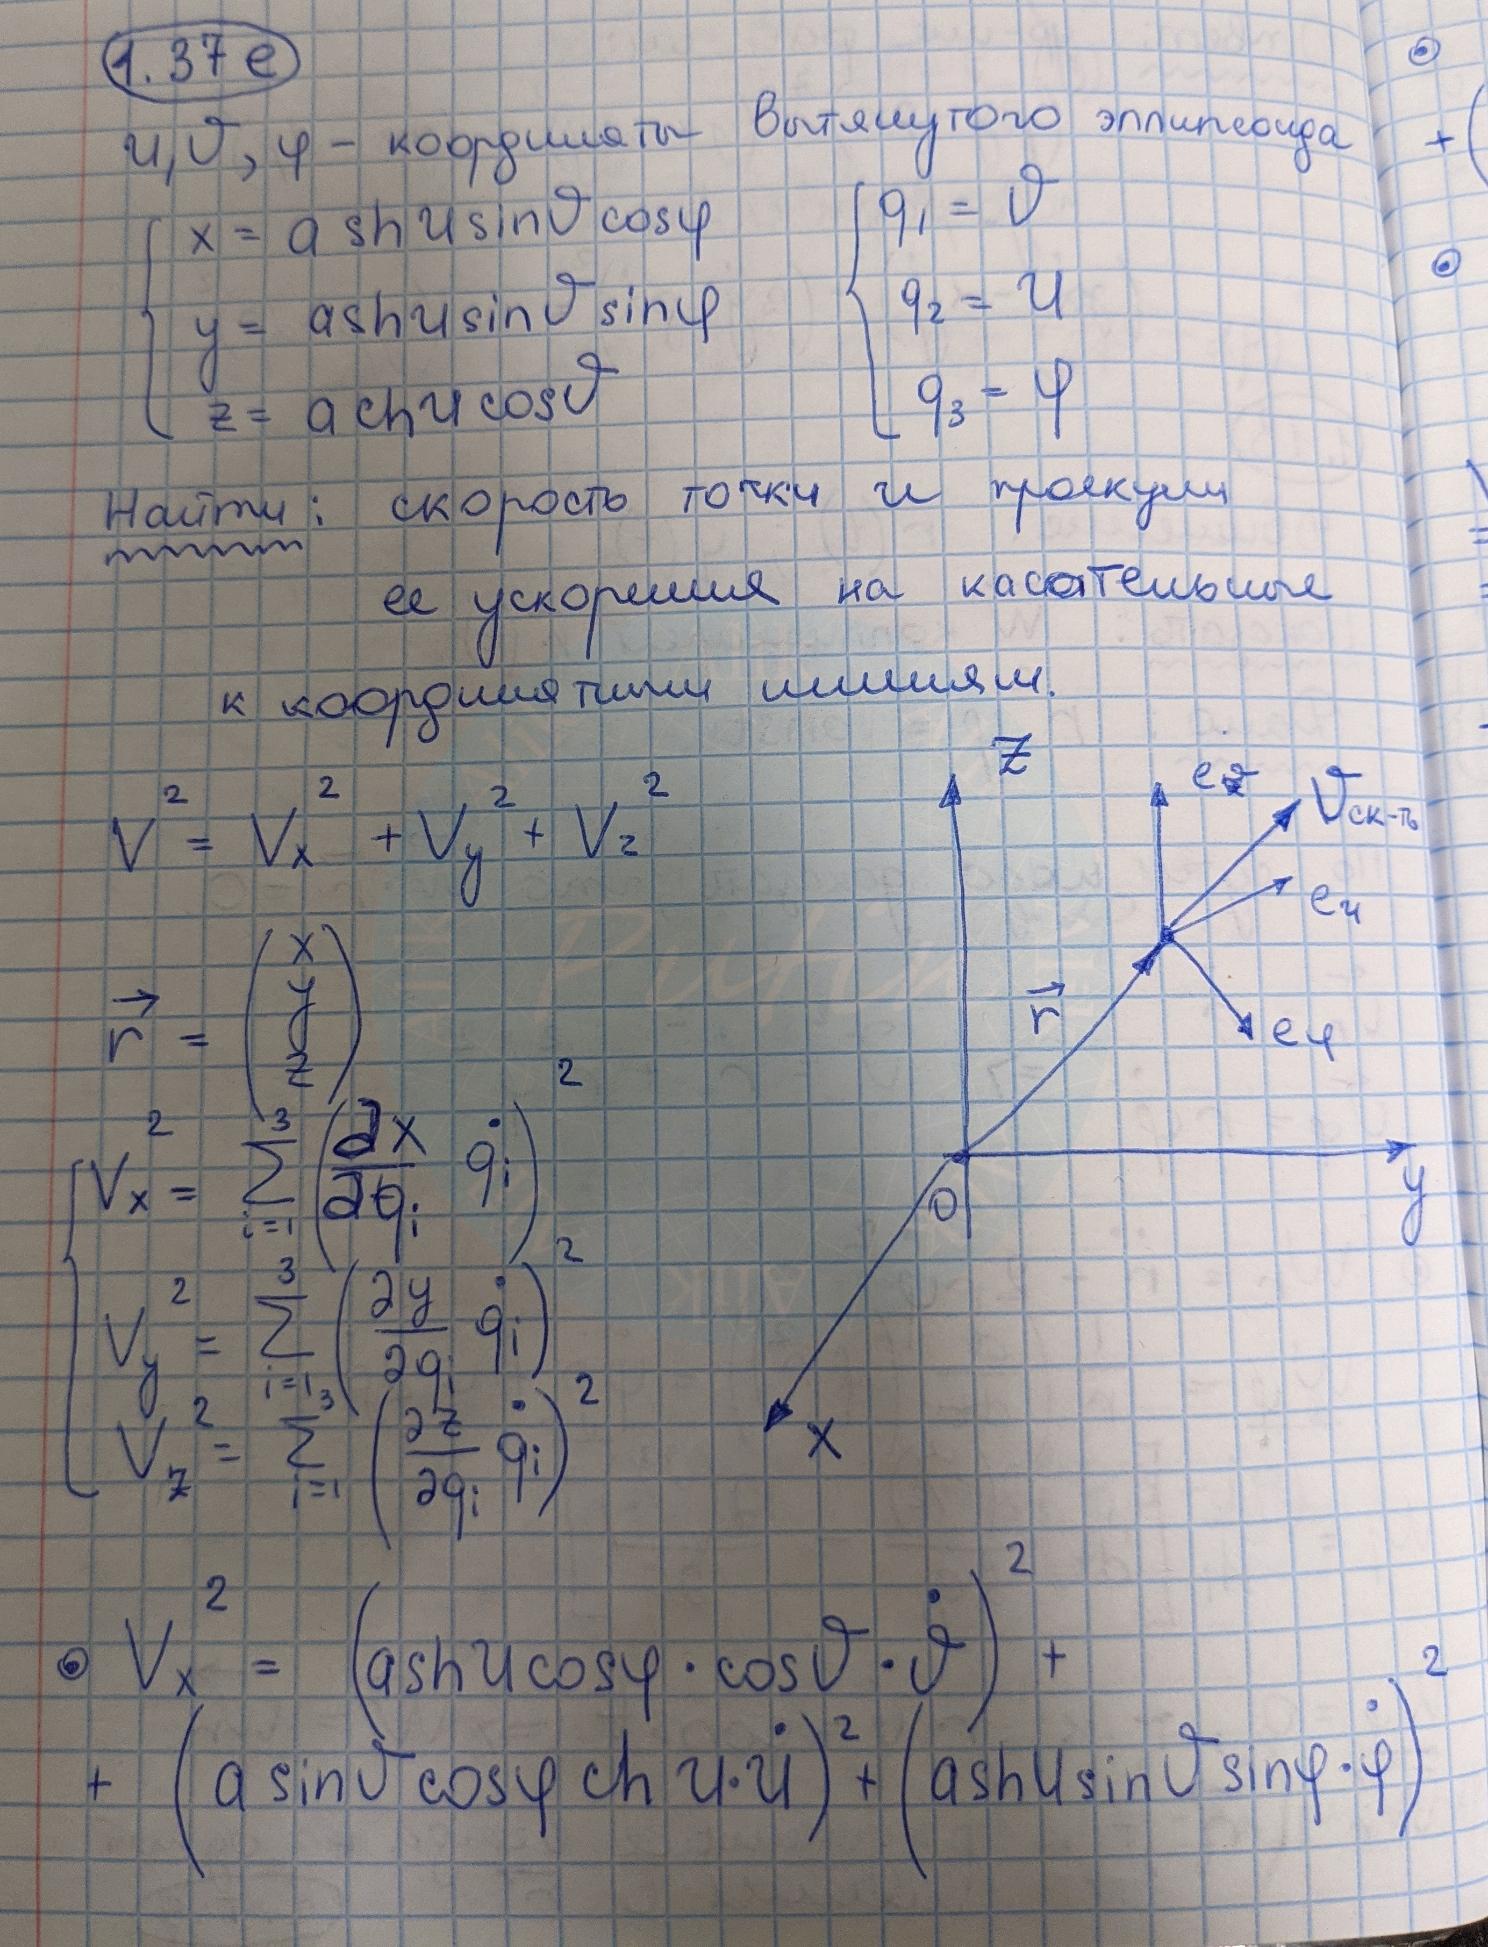 1.37 е
u, ϑ, φ – координаты вытянутого эллипсоида
x = a sh u sinϑ cosφ
y = a sh u sinϑ sinφ
z = a ch u cosϑ
q₁ = ϑ
q₂ = u
q₃ = φ
Найти: скорость точки и проекции
ее ускорения на касательные
к координатным линиям.
V² = Vx² + Vy² + Vz²
r⃗ = (x y z)
Vx² = Σ_{i=1}^{3} (∂x/∂qᵢ q̇ᵢ)²
Vy² = Σ_{i=1}^{3} (∂y/∂qᵢ q̇ᵢ)²
Vz² = Σ_{i=1}^{3} (∂z/∂qᵢ q̇ᵢ)²
z
eϑ
Vск-ть
eu
eφ
r⃗
O
y
x
Vx² = (a sh u cosφ · cosϑ · ϑ̇)² +
+ (a sinϑ cosφ ch u · u̇)² + (a sh u sinϑ sinφ · φ̇)²